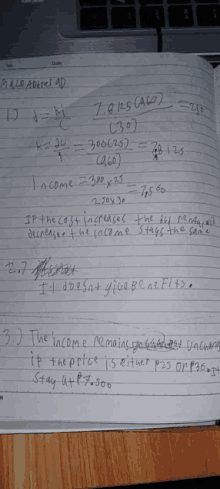 1) d = k/c 7.8125(960)/(30) = 250
k = dc/q = 300(25)/(960) = 7.8125
Income = 300 x 25 = 7,500
250 x 30
IF the cost increases the
decrease the income stays the same
2.)
It doesn't give BeneFits.
3.) The income remains unchang
iF the price is either ₱25 or ₱30. It
Stay at ₱7.500